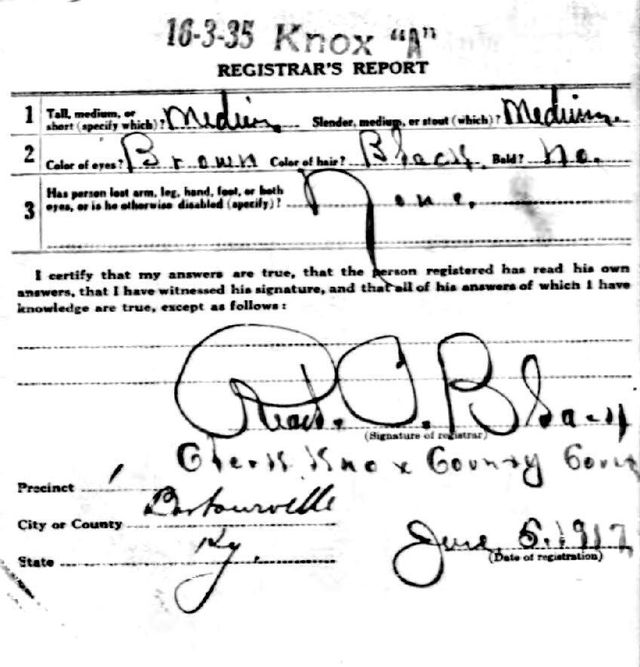 16-3-35 Knox "A"
REGISTRAR'S REPORT
1 Tall, medium, or short (specify which)? Medium Slender, medium, or stout (which)? Medium
2 Color of eyes? Brown Color of hair? Black Bald? No.
3 Has person lost arm, leg, hand, foot, or both eyes, or is he otherwise disabled (specify)? None.
I certify that my answers are true, that the person registered has read his own
answers, that I have witnessed his signature, and that all of his answers of which I have
knowledge are true, except as follows:
C. Black
(Signature of registrar)
Clerk Knox County
Precinct 1
City or County Barbourville
State Ky.
June 5, 1917
(Date of registration)